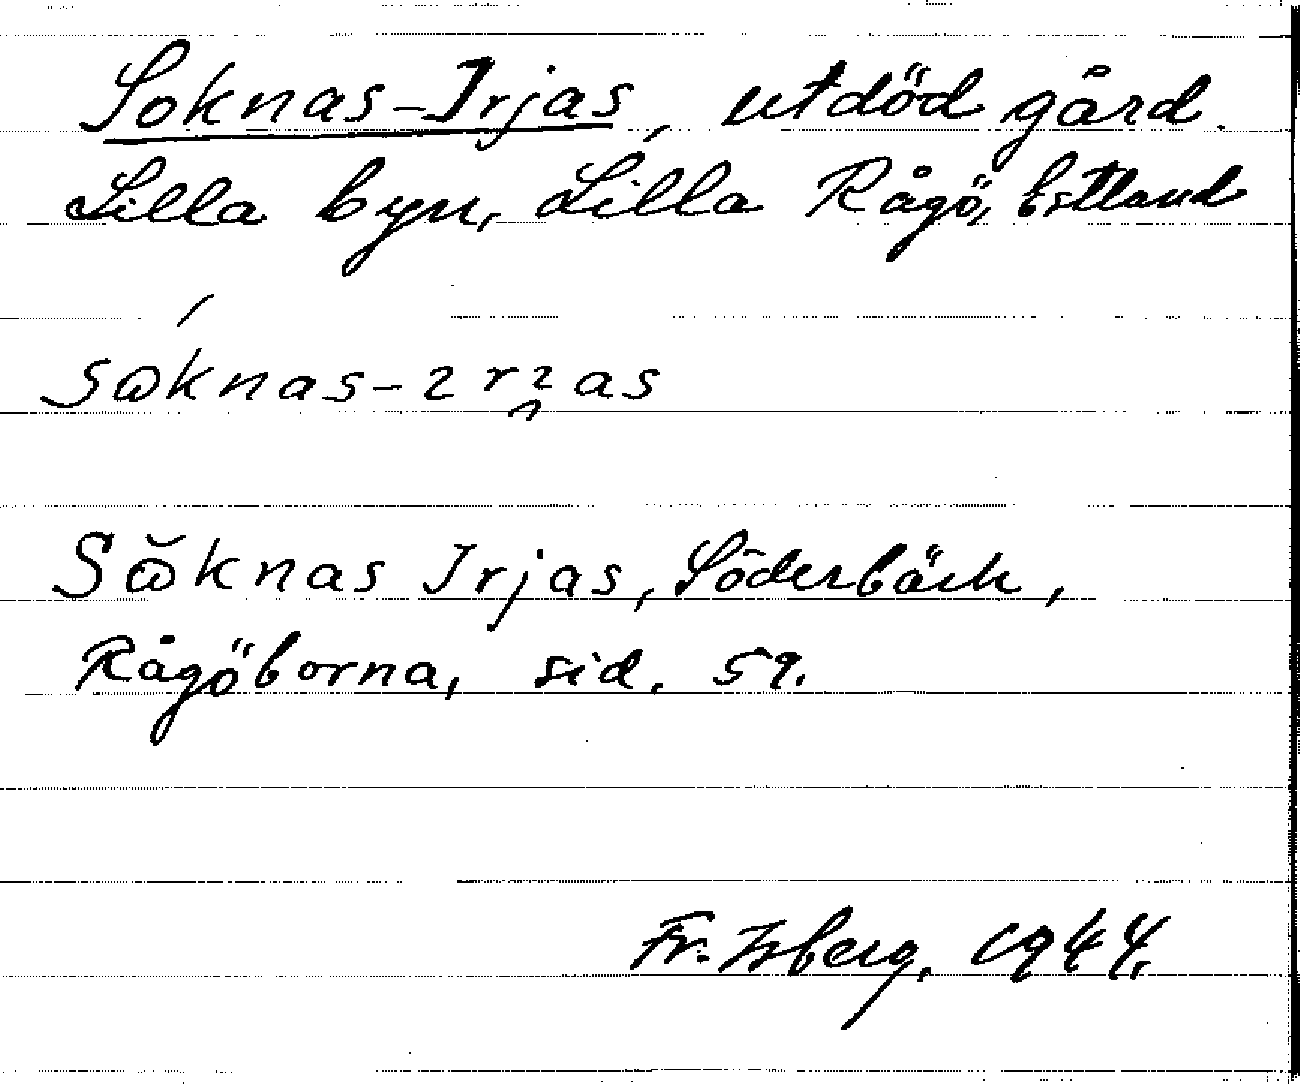 Soknas-Irjas, utdöd gård.
Lilla byn, Lilla Rågö, Estland
Sɷknas-ırı̯as
Sɷ̆knas Irjas, Söderbäck,
Rågöborna, sid. 59.
Fr. Isberg, 1944.